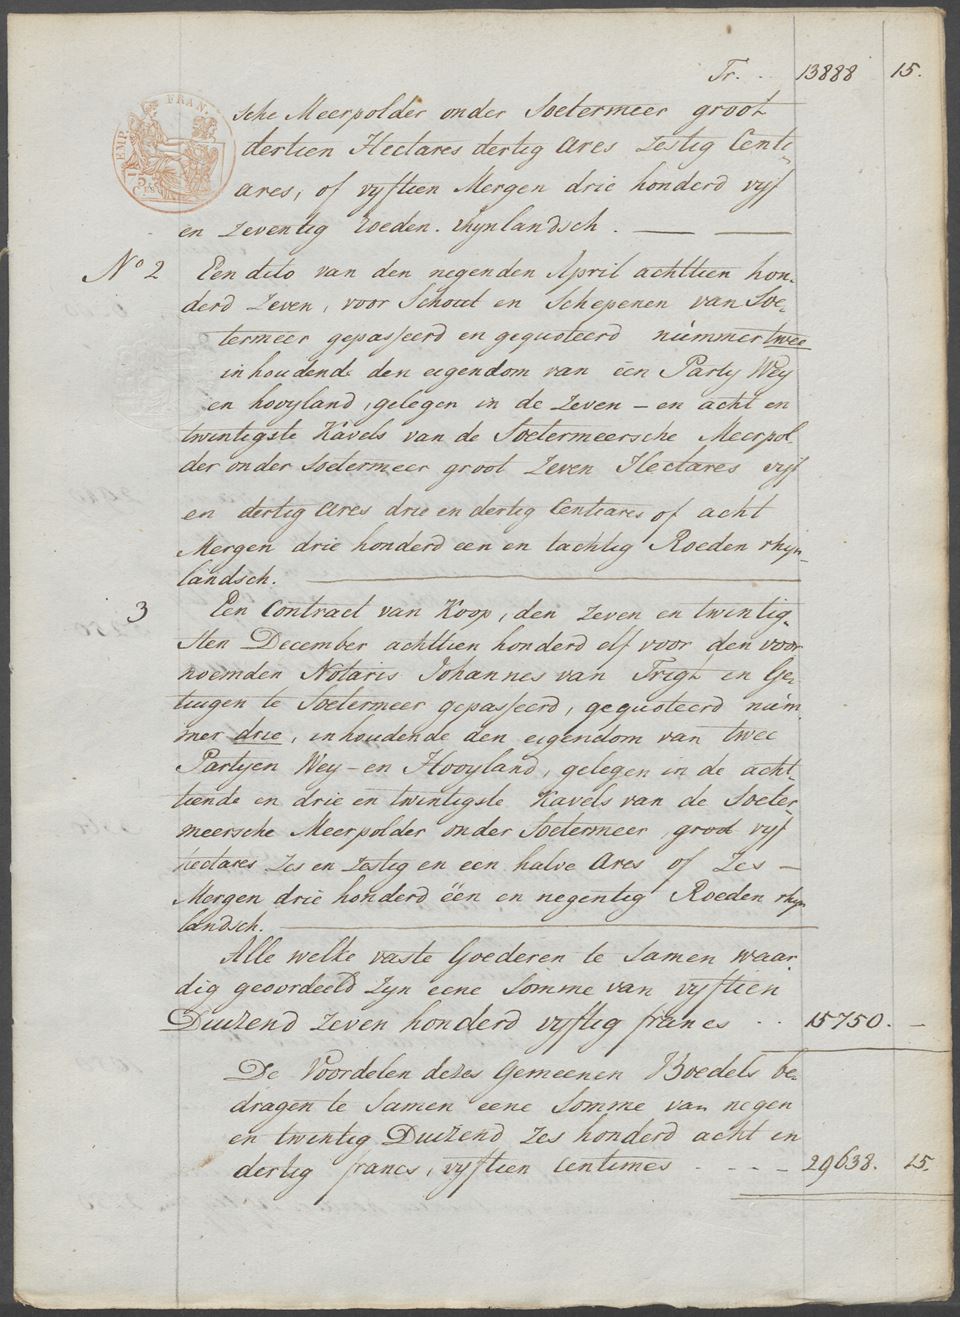 Tr. . . 13888 15.
EMP. FRAN.
sche Meerpolder onder Soetermeer groot
dertien Hectares dertig Ares Zestig Centi-
ares, of vyftien Mergen drie honderd vyf
en Zeventig Roeden. rhynlandsch.
No 2 Een dito van den negenden April achttien hon-
derd Zeven, voor Schout en Schepenen van Soe-
termeer gepasseerd en gequoteerd nummer twee
inhoudende den eigendom van één Party Wey
en hooyland, gelegen in de Zeven – en acht en
twintigste Kavels van de Soetermeersche Meerpol-
der onder Soetermeer groot Zeven Hectares vyf
en dertig Ares drie en dertig Centiares of acht
Mergen drie honderd een en tachtig Roeden rhyn-
landsch.
3 Een Contract van Koop, den Zeven en twintig-
sten December achttien honderd elf voor den voor
noemden Notaris Johannes van Trigt en Ge-
tuigen te Soetermeer gepasseerd, gequoteerd num
mer drie, inhoudende den eigendom van twee
Partyen Wey – en Hooyland, gelegen in de acht-
tiende en drie en twintigste Kavels van de Soeter
meersche Meerpolder onder Soetermeer, groot vyf
hectares Zes en Zestig en een halve Ares of Zes –
Mergen drie honderd één en negentig Roeden rhyn
landsch.
Alle welke vaste Goederen te Samen waar
dig geoordeeld Zyn eene Somme van vyftien
Duizend Zeven honderd vyftig francs . . 15750. –
De Voordelen dezes Gemeenen Boedels be-
dragen te Samen eene Somme van negen
en twintig Duizend Zes honderd acht en
dertig francs, vyftien Centimes . - - - 29638. 15.